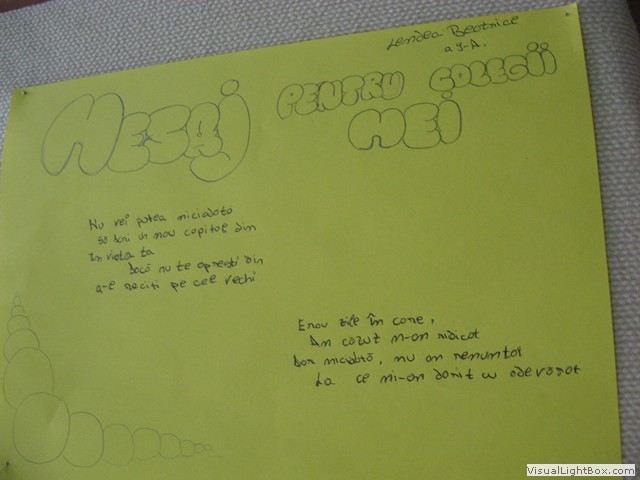 Lendea Beatrice
MESAJ PENTRU COLEGII
MEI
Nu vei putea niciodata
să un nou capitol din
în viata ta
dacă nu te oprești din
a-l reciti pe cele vechi
Erau zile în care,
Am cazut m-am ridicat
Dar niciodată, nu am renuntat
La ce mi-am dorit cu adevarat
VisualLightBox.com